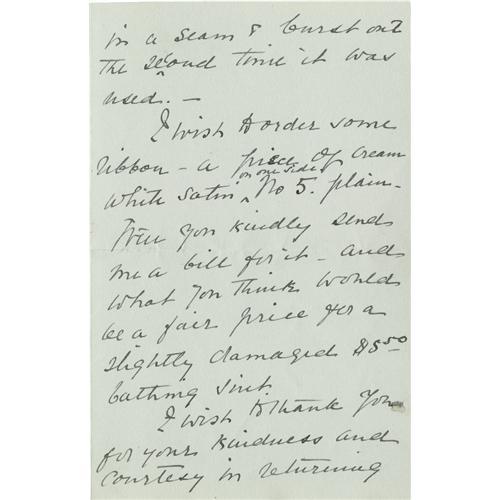 in a seam & burst out
the second time it was
used. —
I wish to order some
ribbon — a piece of cream
on one side
white satin ^ No 5. plain —
Will you kindly send
me a bill for it — and
what you think would
be a fair price for a
slightly damaged $8.50
bathing suit
I wish to thank you
for your kindness and
courtesy in returning